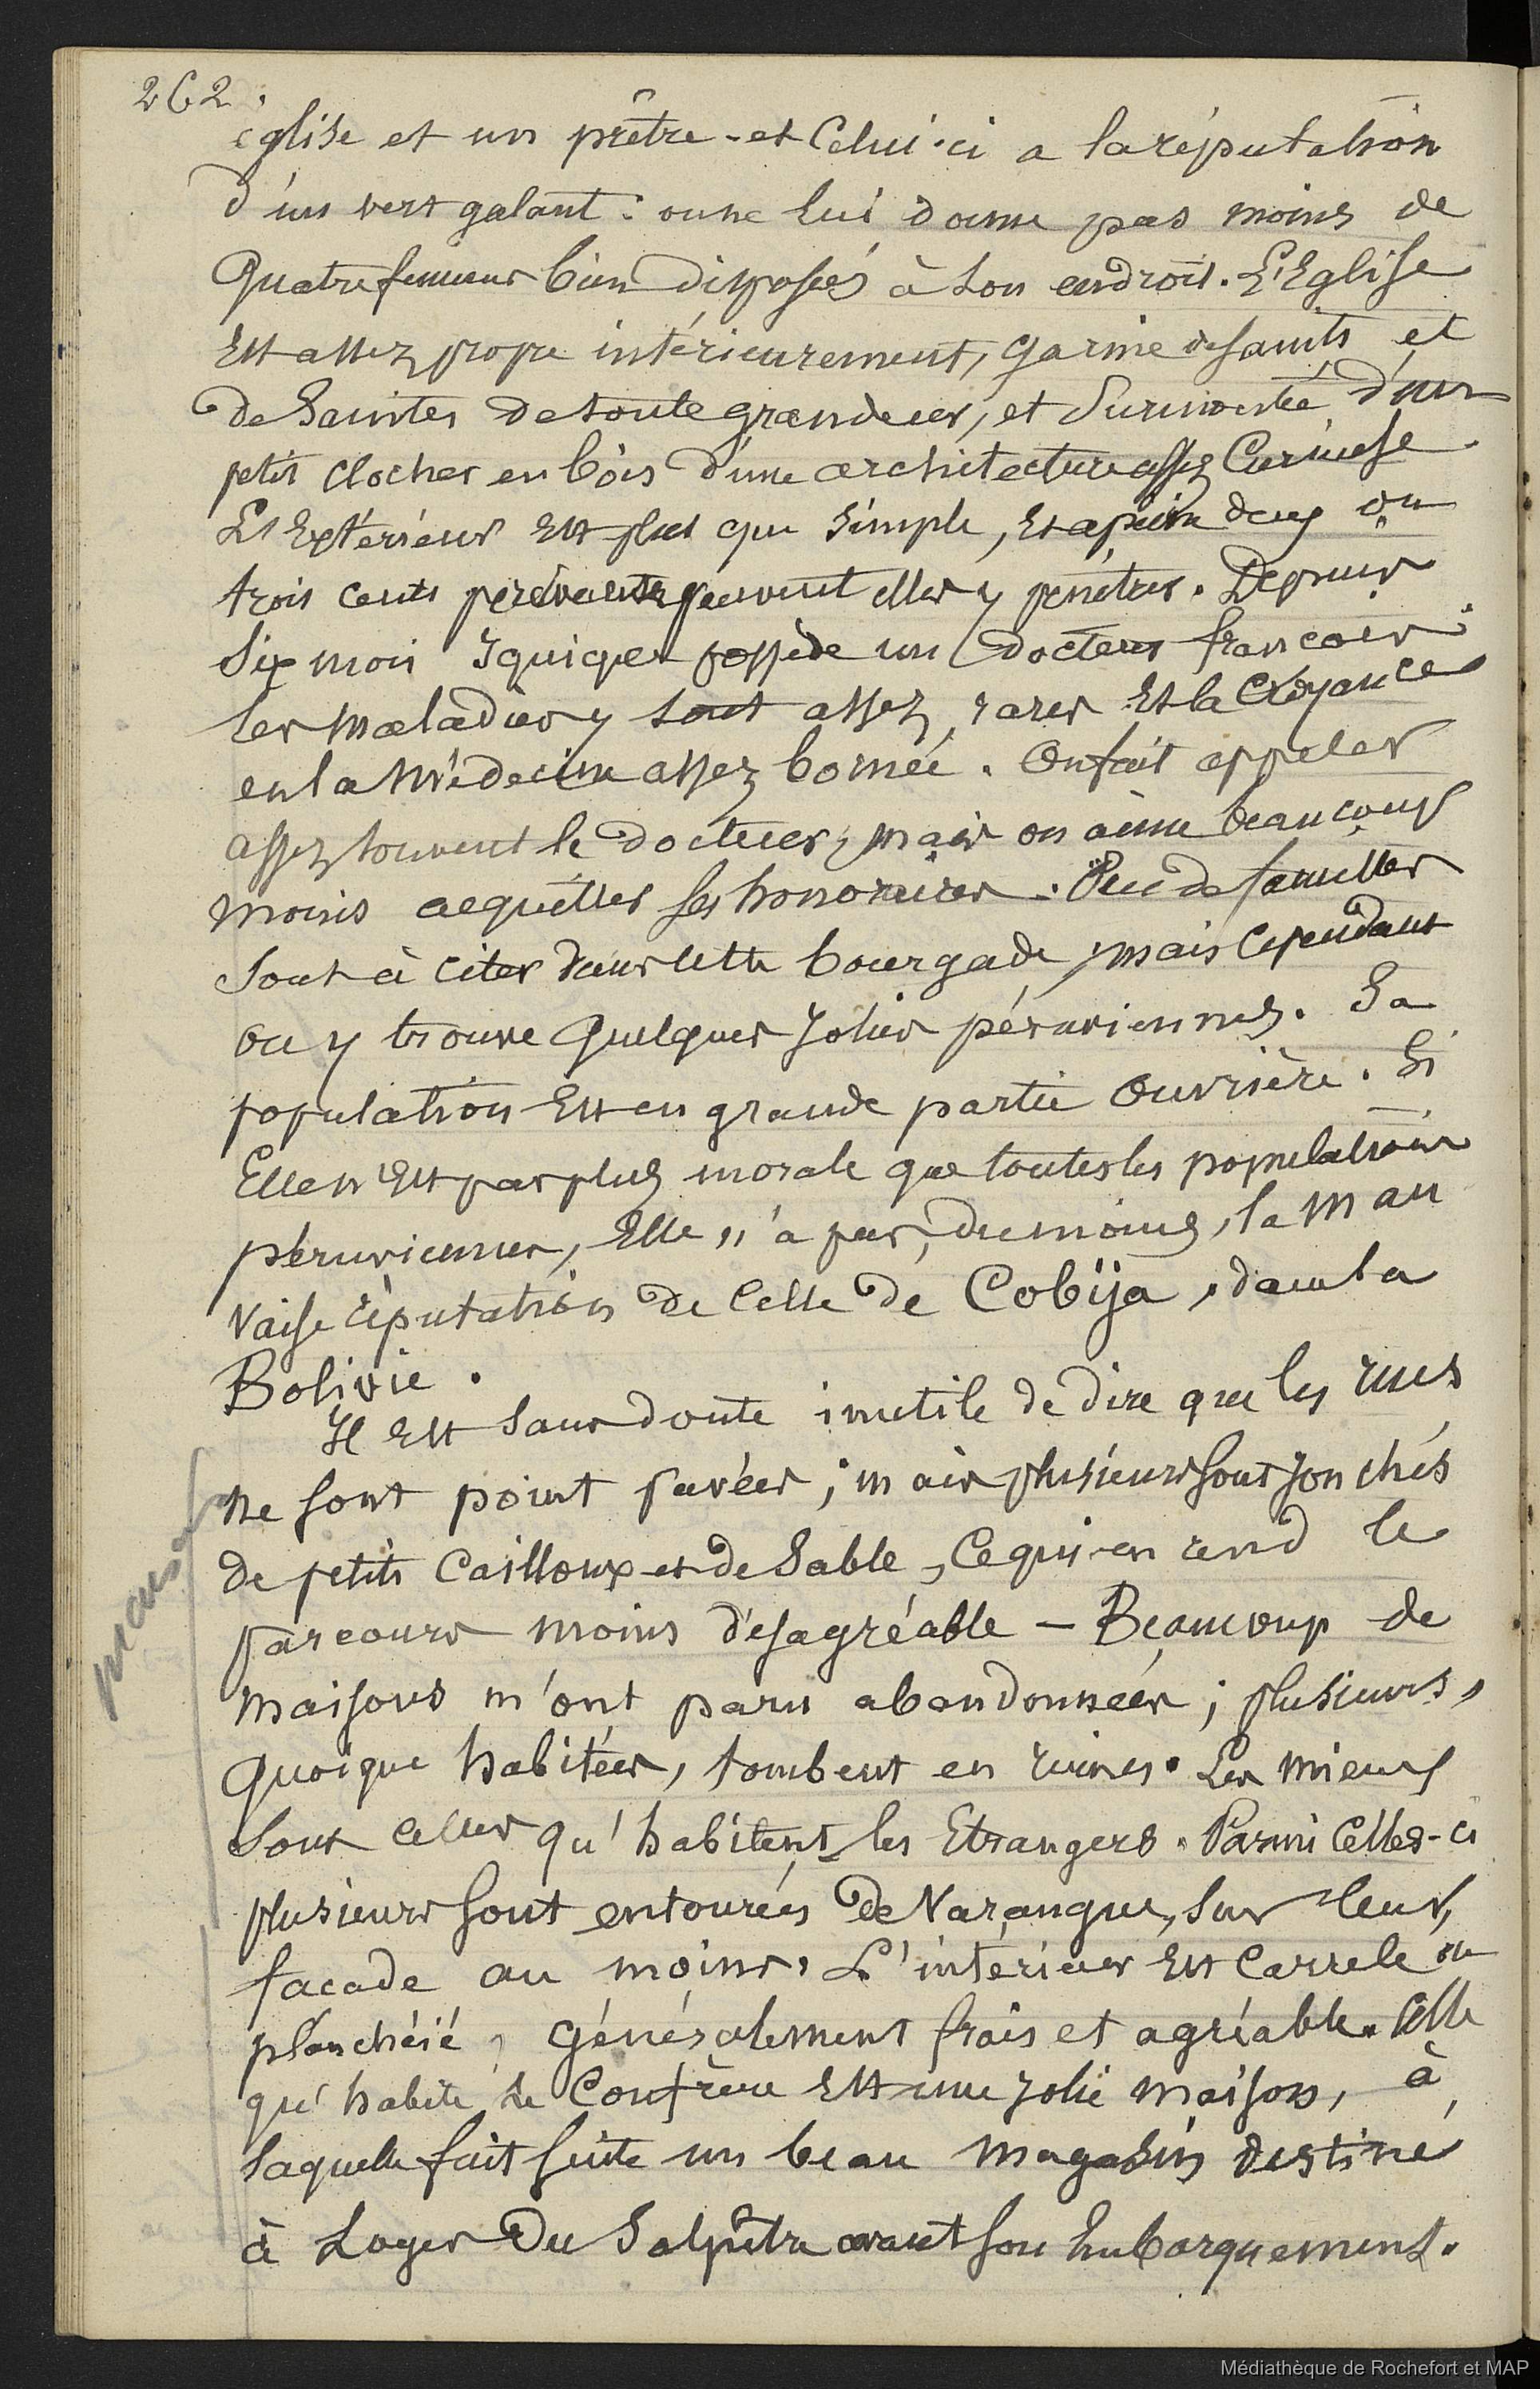 262.
église et un prêtre - et Celui-ci a la réputation
d'un vert galant : on ne lui donne pas moins de
Quatre femmes bien disposées à son endroit. L'Eglise
Est assez propre intérieurement, garnie de saints et
de Saintes de toute grandeur, et Surmontée d'un
petit clocher en bois d'une architecture assez Curieuse.
L'Extérieur Est plus que simple, Et à peine deux ou
trois cents peuvent elles y pénétrer. Depuis
Six mois Iquique possède un Docteur français ;
les maladies y sont assez rares Et la Croyance
en la Médecine assez bornée. On fait appeler
assez souvent le Docteur, mais on aime beaucoup
moins acquitter ses honoraires. Peu de familles
sont à citer dans cette bourgade, mais Cependant
on y trouve Quelques Jolies péruviennes. La
population Est en grande partie Ouvrière. Si
Elle n'Est pas plus morale que toutes les populations
péruviennes, Elle n'a pas, du moins, la mau
vaise réputation de Celle de Cobija, dans la
Bolivie.
Il Est sans doute inutile de dire que les rues
ne sont point pavées ; mais plusieurs sont jonchés
de petits Cailloux et de Sable, Ce qui en rend le
parcours moins désagréable - Beaucoup de
maisons m'ont paru abandonnées ; plusieurs,
Quoique habitées, tombent en ruines. Les mieux
sont celles qu'habitent les Etrangers. Parmi Celles-ci
plusieurs sont entourées de Varangues, sur leur
façade au moins. L'intérieur Est Carrelé ou
planchéié, Généralement frais et agréable. Celle
qu'habite le Confrère Est une Jolie maison, à
laquelle fait suite un beau magasin destiné
à Loger Du Salpêtre avant son Embarquement.
maisons
Médiathèque de Rochefort et MAP